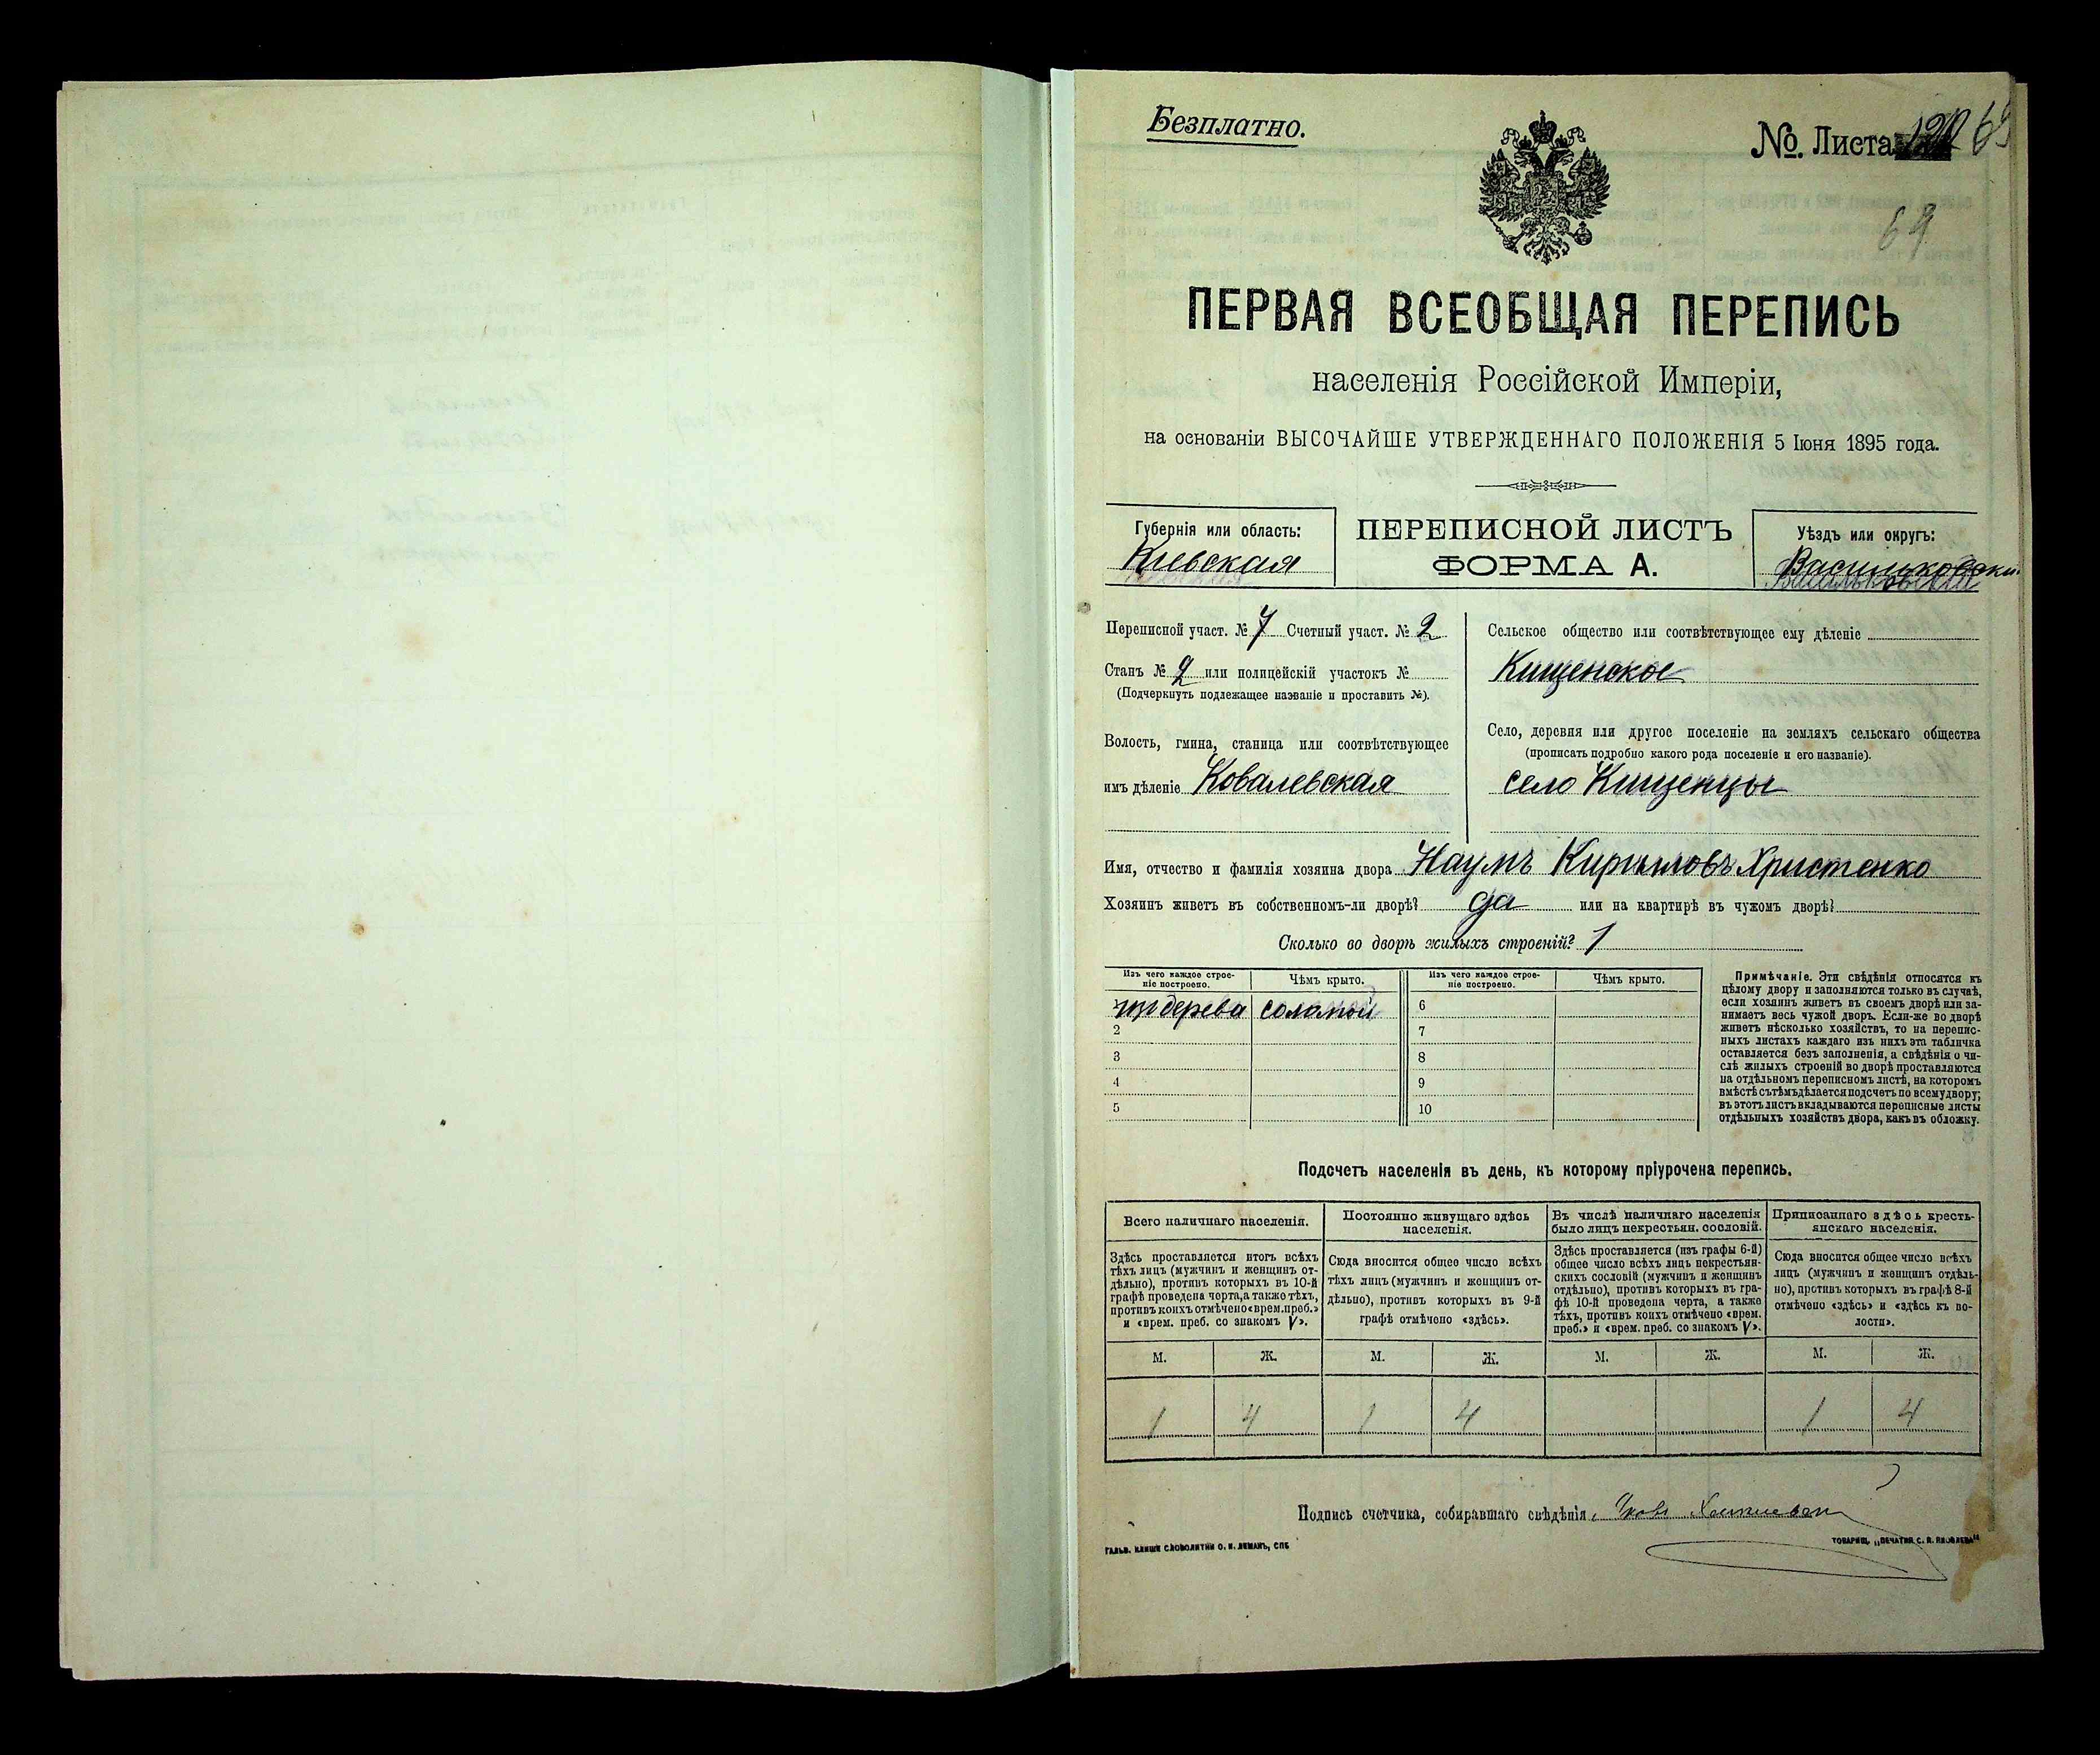 Безплатно.
№. Листа
69
ПЕРВАЯ ВСЕОБЩАЯ ПЕРЕПИСЬ
населенія Россійской Имперіи,
на основаніи ВЫСОЧАЙШЕ УТВЕРЖДЕННАГО ПОЛОЖЕНІЯ 5 Іюня 1895 года.
Губернія или область:
Кіевская
ПЕРЕПИСНОЙ ЛИСТЪ
ФОРМА А.
Уѣздъ или округъ:
Васильковскій
Переписной участ. № 7 Счетный участ. № 2
Станъ № 2 или полицейскій участокъ №
(Подчеркнуть подлежащее названіе и проставить №).
Волость, гмина, станица или соотвѣтствующее
имъ дѣленіе Ковалевская
Сельское общество или соотвѣтствующее ему дѣленіе
Кищенское
Село, деревня или другое поселеніе на земляхъ сельскаго общества
(прописать подробно какого рода поселеніе и его названіе).
село Кищенцы
Имя, отчество и фамилія хозяина двора Наумъ Кириловъ Христенко
Хозяинъ живетъ въ собственномъ-ли дворѣ? да или на квартирѣ въ чужомъ дворѣ?
Сколько во дворѣ жилыхъ строеній? 1
Изъ чего каждое строе-
ніе построено.
Чѣмъ крыто.
Изъ чего каждое строе-
ніе построено.
Чѣмъ крыто.
изъ дерева соломой 6
2 7
3 8
4 9
5 10
Примѣчаніе. Эти свѣдѣнія относятся къ
цѣлому двору и заполняются только въ случаѣ,
если хозяинъ живетъ въ своемъ дворѣ или за-
нимаетъ весь чужой дворъ. Если-же во дворѣ
живетъ нѣсколько хозяйствъ, то на перепис-
ныхъ листахъ каждаго изъ нихъ эта табличка
оставляется безъ заполненія, а свѣдѣнія о чи-
слѣ жилыхъ строеній во дворѣ проставляются
на отдѣльномъ переписномъ листѣ, на которомъ
вмѣстѣ съ тѣмъ дѣлается подсчетъ по всему двору;
въ этотъ листъ вкладываются переписные листы
отдѣльныхъ хозяйствъ двора, какъ въ обложку.
Подсчетъ населенія въ день, къ которому пріурочена перепись.
Всего наличнаго населенія.
Здѣсь проставляется итогъ всѣхъ
тѣхъ лицъ (мужчинъ и женщинъ от-
дѣльно), противъ которыхъ въ 10-й
графѣ проведена черта, а также тѣхъ,
противъ коихъ отмѣчено «врем. преб.»
и «врем. преб. со знакомъ V».
Постоянно живущаго здѣсь
населенія.
Сюда вносится общее число всѣхъ
тѣхъ лицъ (мужчинъ и женщинъ от-
дѣльно), противъ которыхъ въ 9-й
графѣ отмѣчено «здѣсь».
Въ числѣ наличнаго населенія
было лицъ некрестьян. сословій.
Здѣсь проставляется (изъ графы 6-й)
общее число всѣхъ лицъ некрестьян-
скихъ сословій (мужчинъ и женщинъ
отдѣльно), противъ которыхъ въ гра-
фѣ 10-й проведена черта, а также
тѣхъ, противъ коихъ отмѣчено «врем.
преб.» и «врем. преб. со знакомъ V».
Приписаннаго здѣсь кресть-
янскаго населенія.
Сюда вносится общее число всѣхъ
лицъ (мужчинъ и женщинъ отдѣль-
но), противъ которыхъ въ графѣ 8-й
отмѣчено «здѣсь» и «здѣсь къ во-
лости».
М. Ж. М. Ж. М. Ж. М. Ж.
1 4 1 4 1 4
Подпись счетчика, собиравшаго свѣдѣнія
ГАЛЬВ. КЛИШЕ СЛОВОЛИТНИ О. И. ЛЕМАНЪ, СПБ
ТОВАРИЩ. „ПЕЧАТНЯ С. П. ЯКОВЛЕВА“